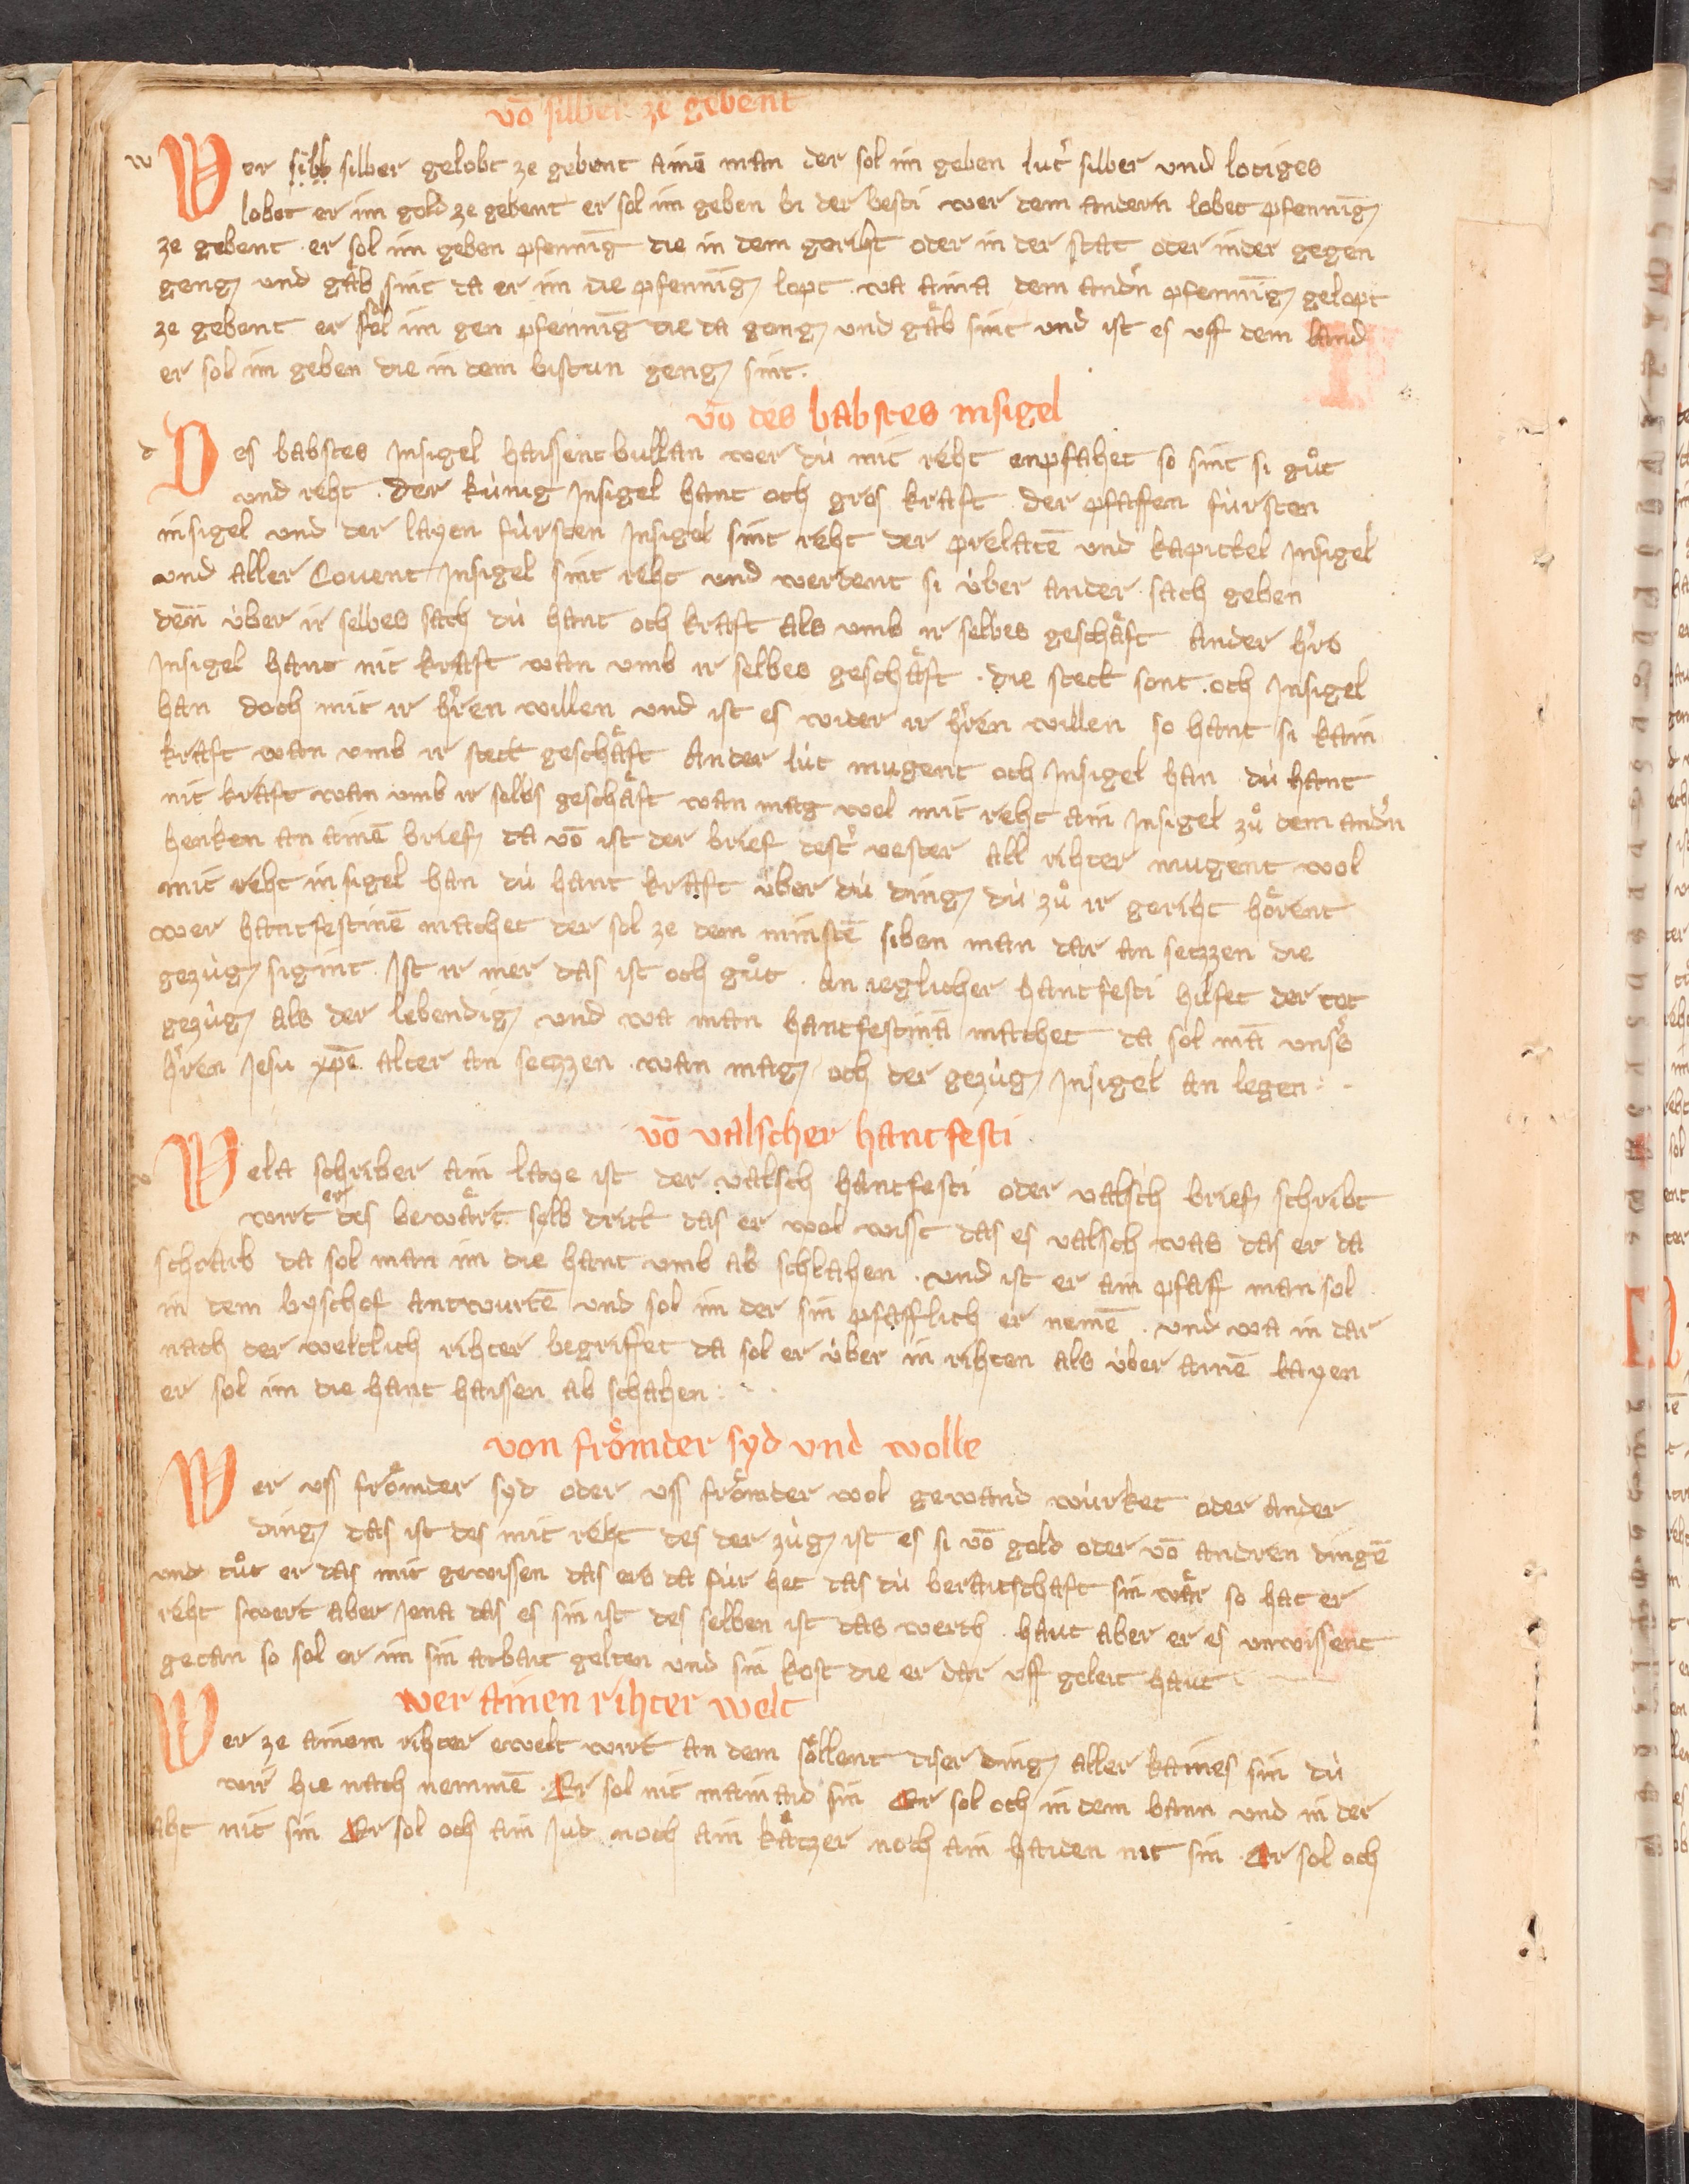 vō silber ze gebent
Wer silb silber gelobt ze gebent ainē man der sol im geben lutͬ silber vnd lotiges
lobet er im gold ze gebent er sol im geben bi der besti wer dem andern lobet pfennīg
ze gebent · er sol im geben pfennīg die in dem geriht oder in der statt oder in der gegen
geng vnd gaͤb sint da er im die pfennīg lopt · wa aina dem andn̄ pfennīg gelopt
ze gebent er soͤl im gen pfennīg die da geng vnd gaͤb sint vnd ist es vff dem land
er sol im geben die in dem bistun geng sint ·
vō des babstes insigel
Des babstes Insigel haissent bullan wer dù mit reht enpfahet so sint si guͦt
vnd reht · Der kùnig Insigel hant och gros kraft der pfaffen fùrsten
insigel vnd der layen fùrsten Insigel sint reht der prelatē vnd kapittel Insigel
vnd aller Couent Insigel sint reht vnd werdent si ùber ander sach geben
denn ùber ir selbes sach dù hant och kraft als vmb ir selbes geschaͤft ander hͬrs
Insigel hant nit kraft wan vmb ir selbes geschaͤft · die stett sont · och Insigel
han doch mit ir hͬren willen vnd ist es wider ir hͬren willen so hant si kain
kraft wan vmb ir stett geschaͤft Ander lùt mugent och Insigel han dù hant
nit kraft wan vmb ir selbs geschaͤft wan mag wol mit reht ain Insigel zuͦ dem andn̄
henken an ainē brief da vō ist der brief destͬ vester all rihter mugent wol
mit reht insigel han dù hant kraft ùber dù ding dù zuͦ ir geriht hoͤrent
wer hantfestinē machet der sol ze dem minstē siben man dar an setzzen die
gezùg sigint · Ist ir mer das ist och guͦt · An ieglicher hantfesti hilfet der tot
gezùg als der lebendig vnd wa man hantfestinā machet da sol mā vnsͬs
hͬren Jesu xpē alter an setzzen · wan mag och der gezùg Insigel an legen : ·
vō valscher hantfesti
Wela schriber ain laye ist der valsch hantfesti oder valsch brief schribt
wirt er des bewaͤrt selb dritt das er wol wisst das es valsch was das er da
schraib da sol man im die hant vmb ab schlahen · vnd ist er ain pfaff man sol
in dem byschof antwurtē vnd sol im der sin pfafflich er nemē · vnd wa in dar
nach der weltlich rihter begriffet da sol er ùber in rihten als ùber ainē layen
er sol im die hant haissen ab schahen : · ·
von froͤmder syd vnd wolle
Wer vss froͤmder syd oder vss froͤmder wol gewand wùrket oder ander
ding das ist des mit reht des der zùg ist es si vō gold oder vō andren dingē
vnd tuͦt er das mit gewissen das ers da fùr het das dù beraitschaft sin waͤr so hat er
reht swert aber Jena das es sin ist des selben ist das werch · haut aber er es vnwissent
getan so sol er im sin arbait gelten vnd sin kost die er dar vff geleit haut
wer ainen rihter welt
Wer ze ainem rihter erwelt wirt an dem soͤllent diser ding aller kaines sin dù
wir hie nach nemmē · Er sol nit mainaid sin Er sol och in dem bann vnd in der
aht nit sin Er sol och ain Jud noch ain kaͤtzer noch ain haiden nit sin · Er sol och